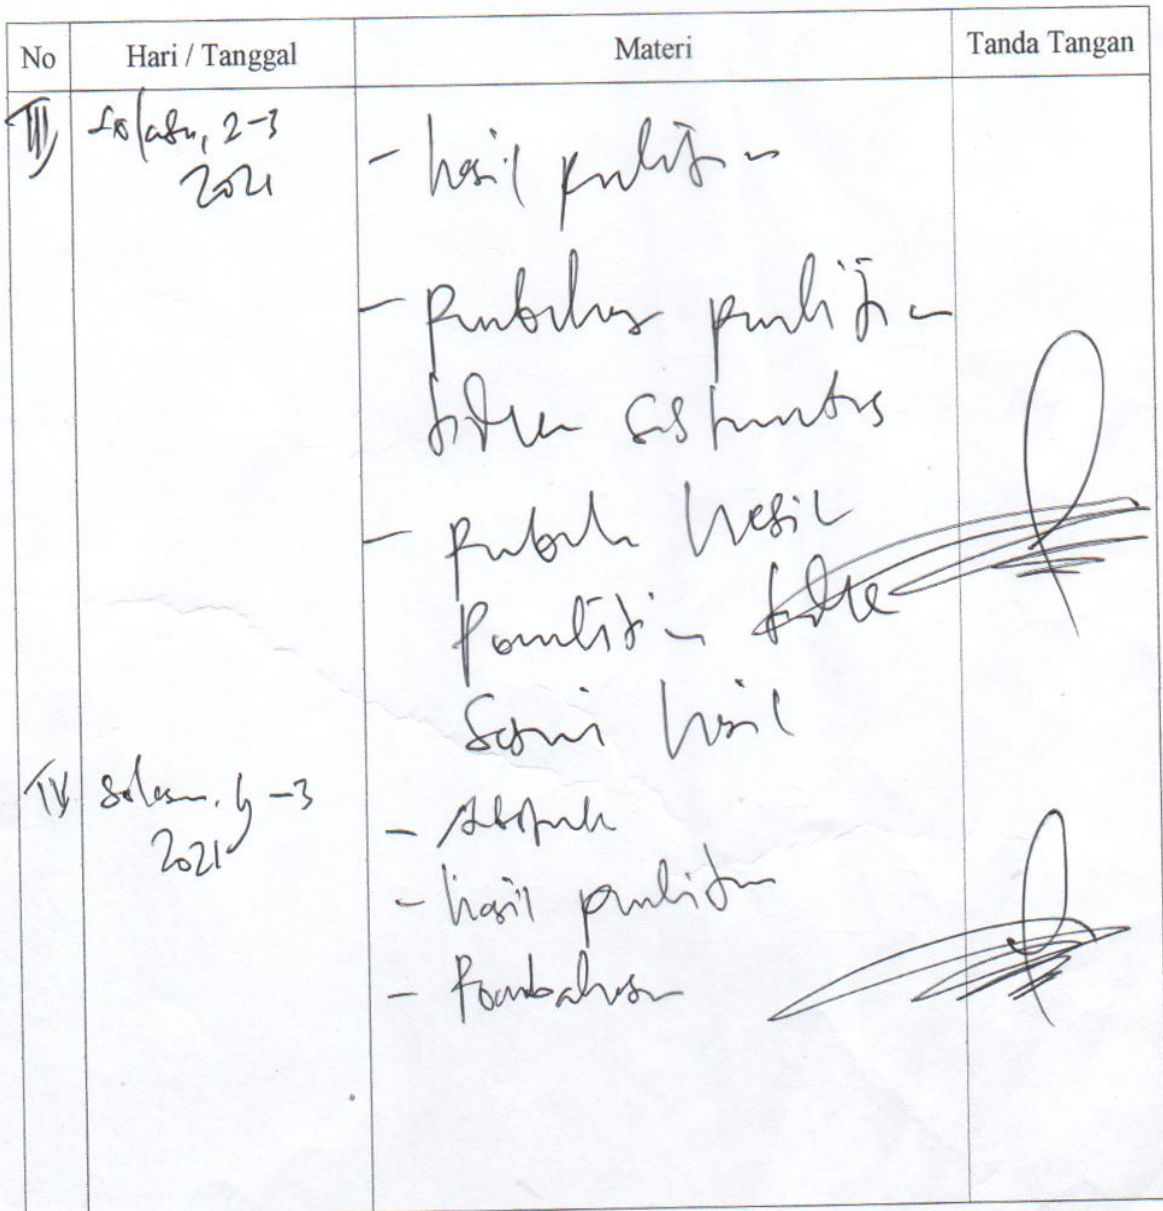 No Hari / Tanggal Materi Tanda Tangan
III Selasa, 2-3
2021
- hasil penelitian
- Pembahas penelitian
tidak sistematis
- Pembah hasil
Penelitian tidak
Sesuai hasil
IV Selasa, -3
2021
- Abstrak
- hasil penelitian
- Pembahasan